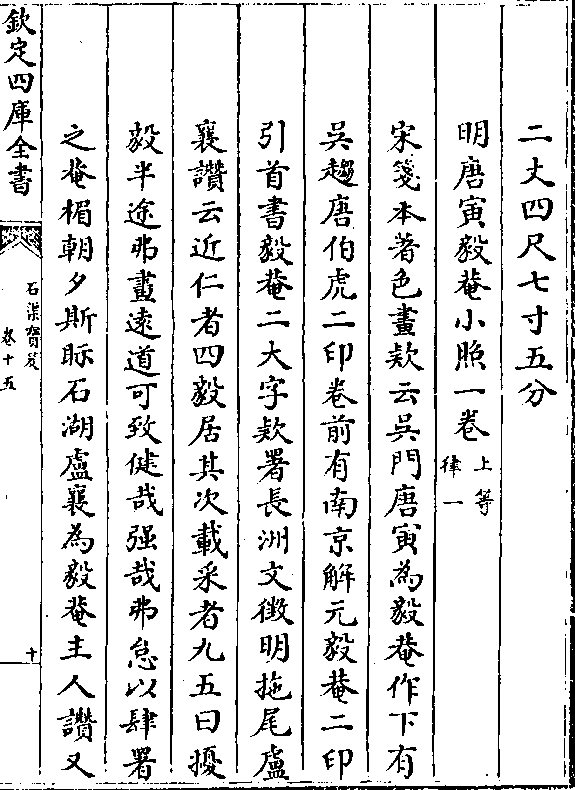 二丈四尺七寸五分
明唐寅毅菴小照一卷上等律一
宋箋本著色畫欵云吳門唐寅為毅菴作下有
吳趨唐伯虎二印卷前有南京解元毅菴二印
引首書毅菴二大字欵署長洲文徴明拖尾盧
襄讚云近仁者四毅居其次載采者九五曰擾
毅半途弗畫遠道可致健哉强哉弗怠以肆署
之菴楣朝夕斯眎石湖盧襄為毅菴主人讚又
欽定四庫全書
石渠寶笈
卷十五
十